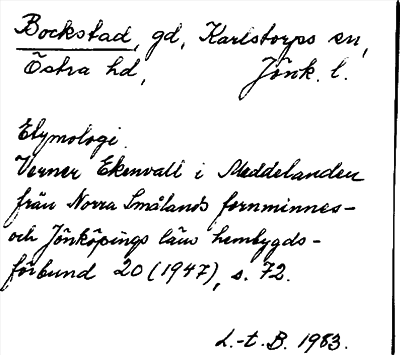 Bockstad, gd, Karlstorps sn,
Östra hd, Jönk. l.
Etymologi.
Verner Ekenvall i Meddelanden
från Norra Smålands fornminnes-
och Jönköpings läns hembygds-
förbund 20 (1947), s. 72.
L.-t. B. 1983.